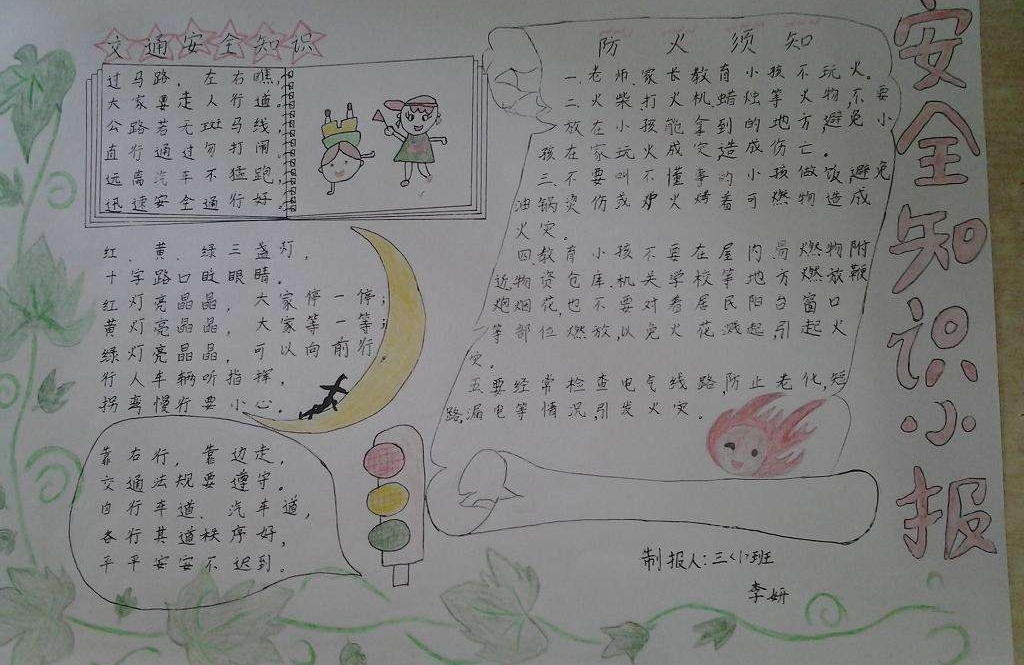 安全知识小报
交通安全知识
过马路,左右瞧,
大家要走人行道。
公路若无斑马线,
直行通过勿打闹。
远离汽车不猛跑,
迅速安全通行好。
红、黄、绿三盏灯,
十字路口眨眼睛。
红灯亮晶晶,大家停一停;
黄灯亮晶晶,大家等一等;
绿灯亮晶晶,可以向前行,
行人车辆听指挥,
拐弯慢行要小心。
靠右行,靠边走,
交通法规要遵守。
自行车道、汽车道,
各行其道秩序好,
平平安安不迟到。
防火须知
一.老师.家长教育小孩不玩火。
二.火柴.打火机.蜡烛等火物,不要
放在小孩能拿到的地方,避免小
孩在家玩火成灾,造成伤亡。
三.不要叫不懂事的小孩做饭,避免
油锅烫伤或炉火烤着可燃物造成
火灾。
四教育小孩不要在屋内易燃物附
近.物资仓库.机关学校等地方燃放鞭
炮.烟花,也不要对着居民阳台窗口
等部位燃放,以免火花溅起,引起火
灾。
五.要经常检查电气线路,防止老化,短
路,漏电等情况,引发火灾。
制报人:三〈1〉班
李妍